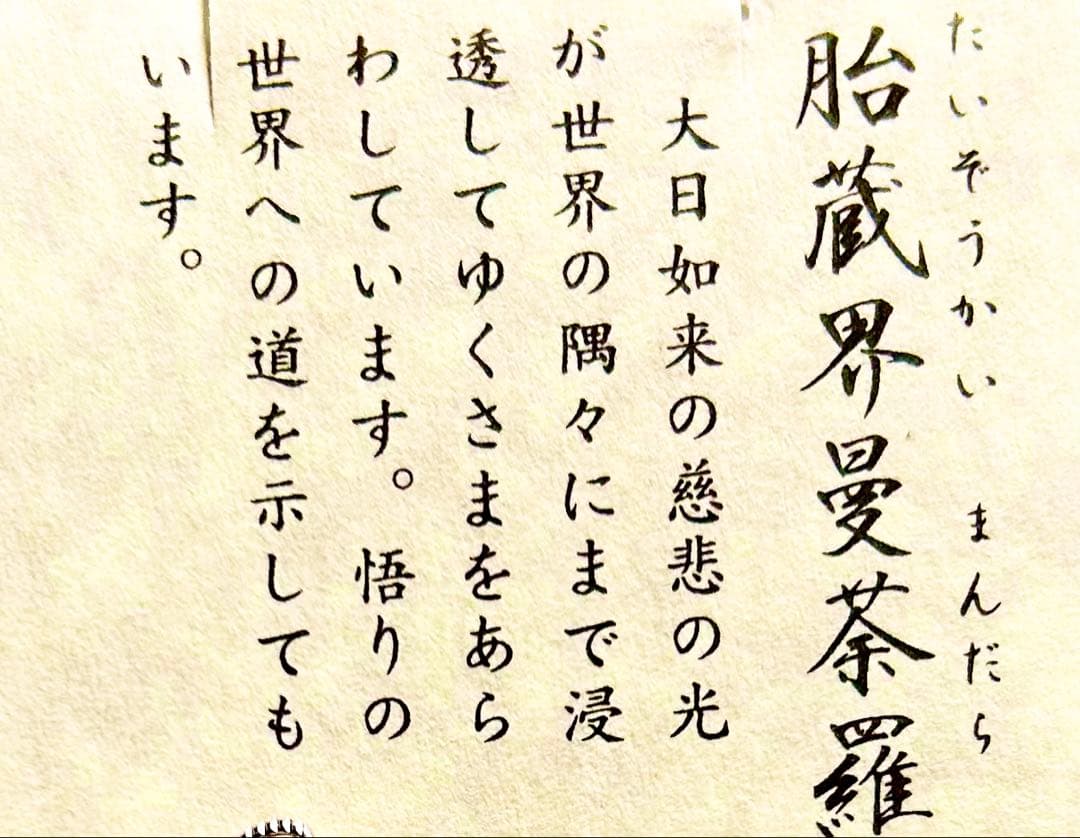 たいぞうかい　まんだら
胎蔵界曼荼羅
大日如来の慈悲の光
が世界の隅々にまで浸
透してゆくさまをあら
わしています。悟りの
世界への道を示しても
います。